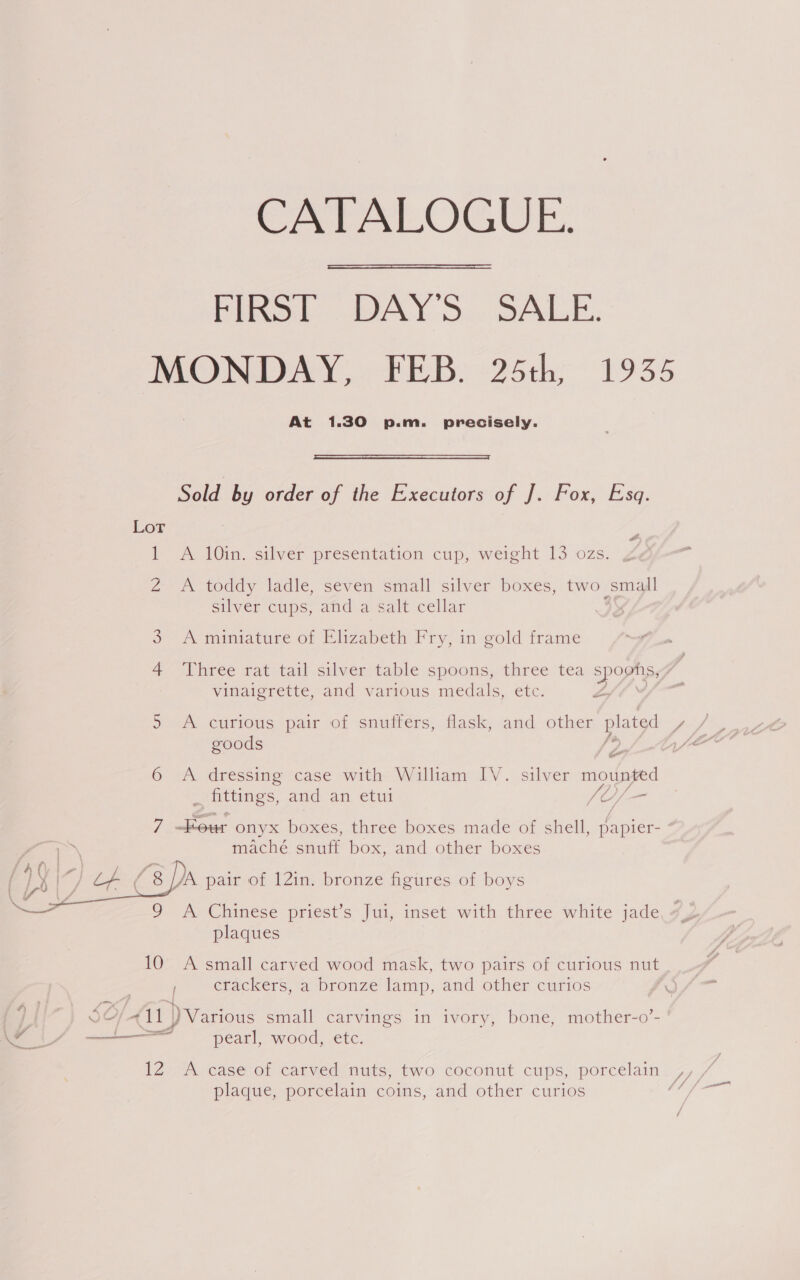 CATALOGUE.
FIRST DAY'S SALE.
MONDAY, FEB. 25th, 1935
At 1.30 p.m. precisely.
Sold by order of the Executors of J. Fox, Esq.
Lot
1 A 10in. silver presentation cup, weight 13 ozs.
2 A toddy ladle, seven small silver boxes, two small
silver cups, and a salt cellar
3 A miniature of Elizabeth Fry, in gold frame
4 Three rat tail silver table spoons, three tea spoons,
vinaigrette, and various medals, etc.
5 A curious pair of snuffers, flask, and other plated
goods
6 A dressing case with William IV. silver mounted
fittings, and an etui
7 Four onyx boxes, three boxes made of shell, papier-
maché snuff box, and other boxes
8 A pair of 12in. bronze figures of boys
9 A Chinese priest's Jui, inset with three white jade
plaques
10 A small carved wood mask, two pairs of curious nut
crackers, a bronze lamp, and other curios
11 Various small carvings in ivory, bone, mother-o'-
pearl, wood, etc.
12 A case of carved nuts, two coconut cups, porcelain
plaque, porcelain coins, and other curios